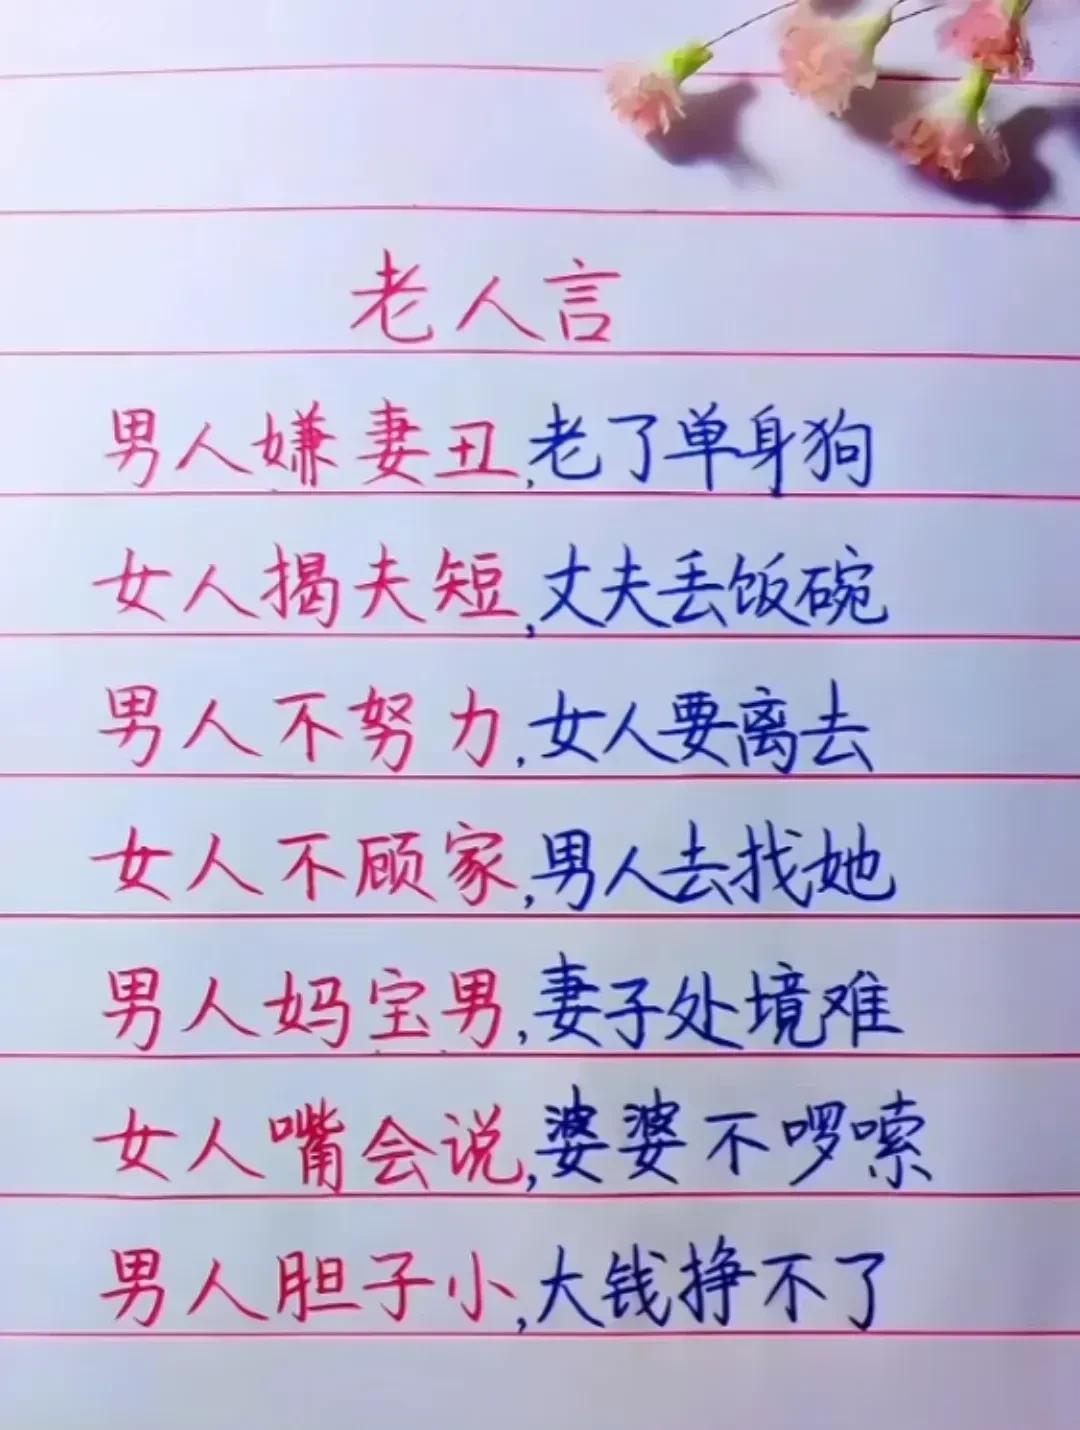 老人言
男人嫌妻丑,老了单身狗
女人揭夫短,丈夫丢饭碗
男人不努力,女人要离去
女人不顾家,男人去找她
男人妈宝男,妻子处境难
女人嘴会说,婆婆不啰嗦
男人胆子小,大钱挣不了